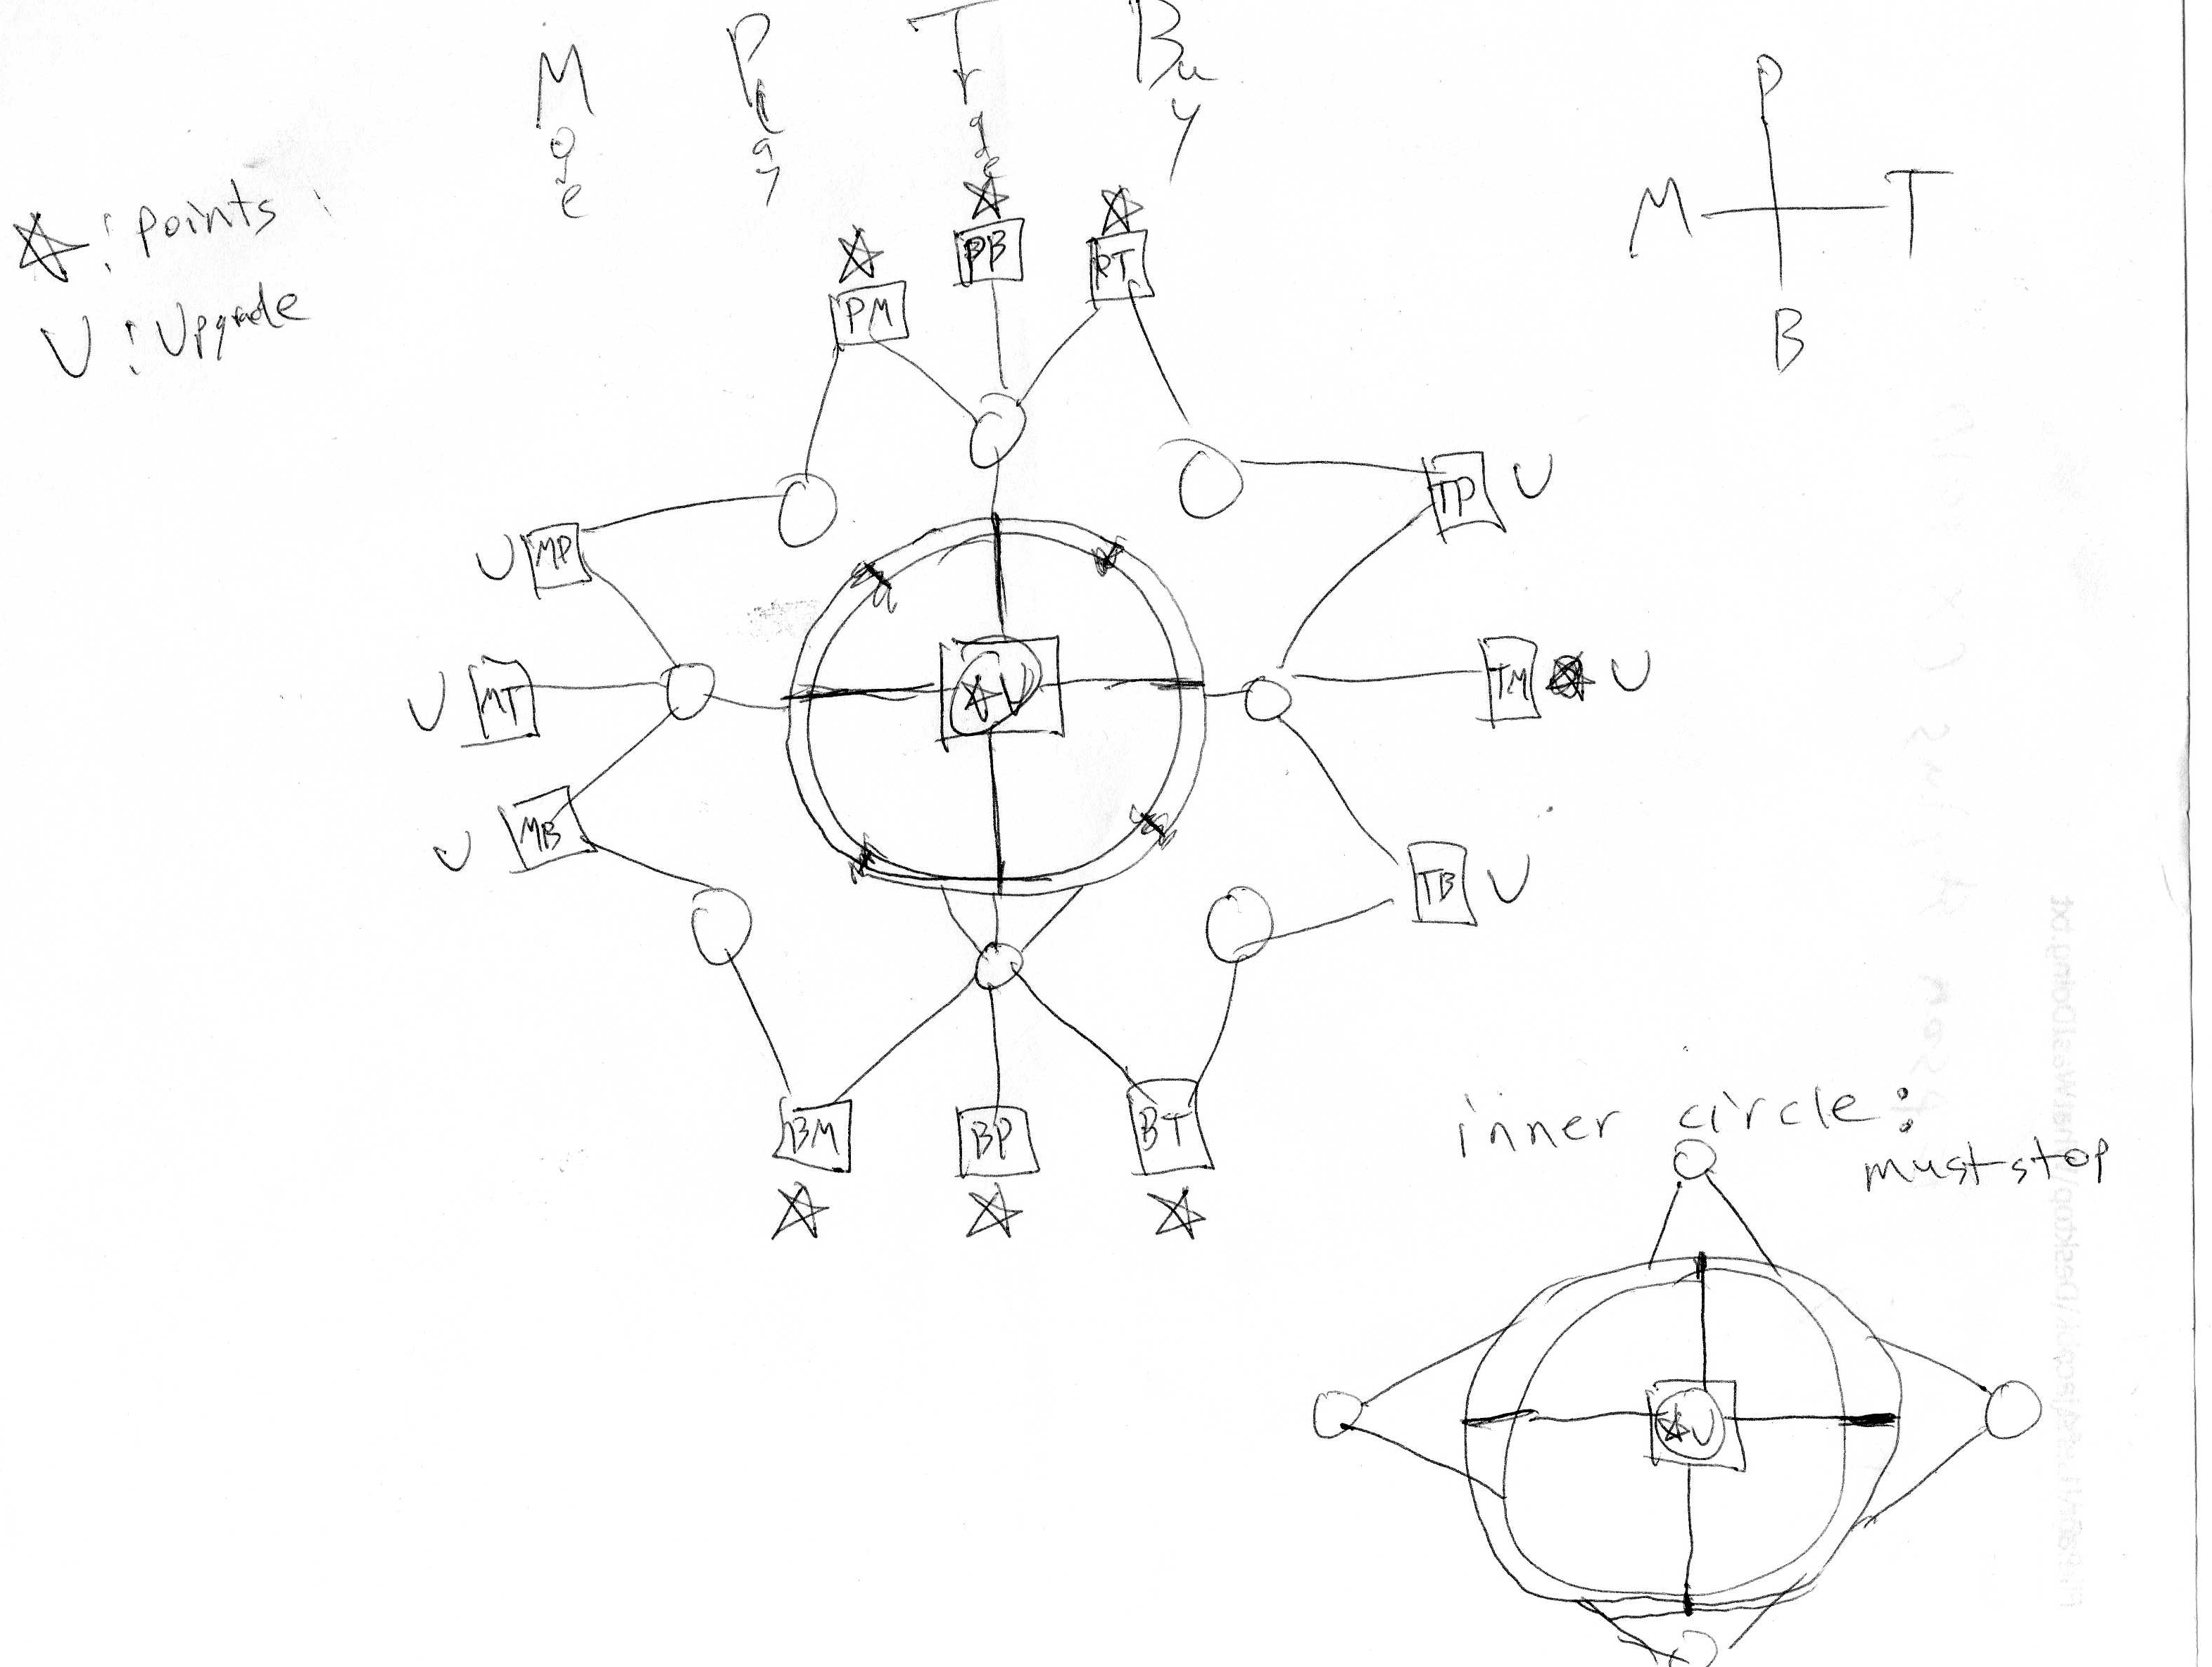 Move
Play
Trade
Buy
☆: points
U: Upgrade
P
M T
B
PM
PB
PT
U MP
TP U
U MT
☆U
TM U
U MB
TB U
BM
BP
BT
inner circle:
must stop
☆U